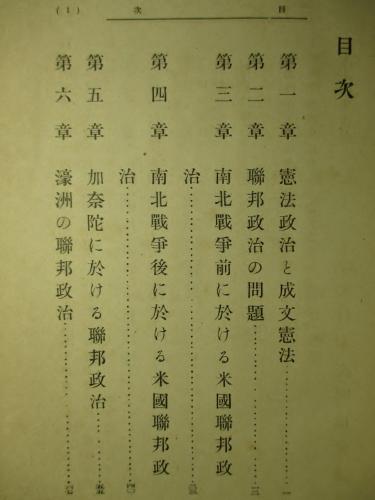 目次
(1)
目次
第一章 憲法政治と成文憲法……………一
第二章 聯邦政治の問題……………
第三章 南北戰爭前に於ける米國聯邦政
治……………
第四章 南北戰爭後に於ける米國聯邦政
治……………
第五章 加奈陀に於ける聯邦政治……………
第六章 濠洲の聯邦政治……………